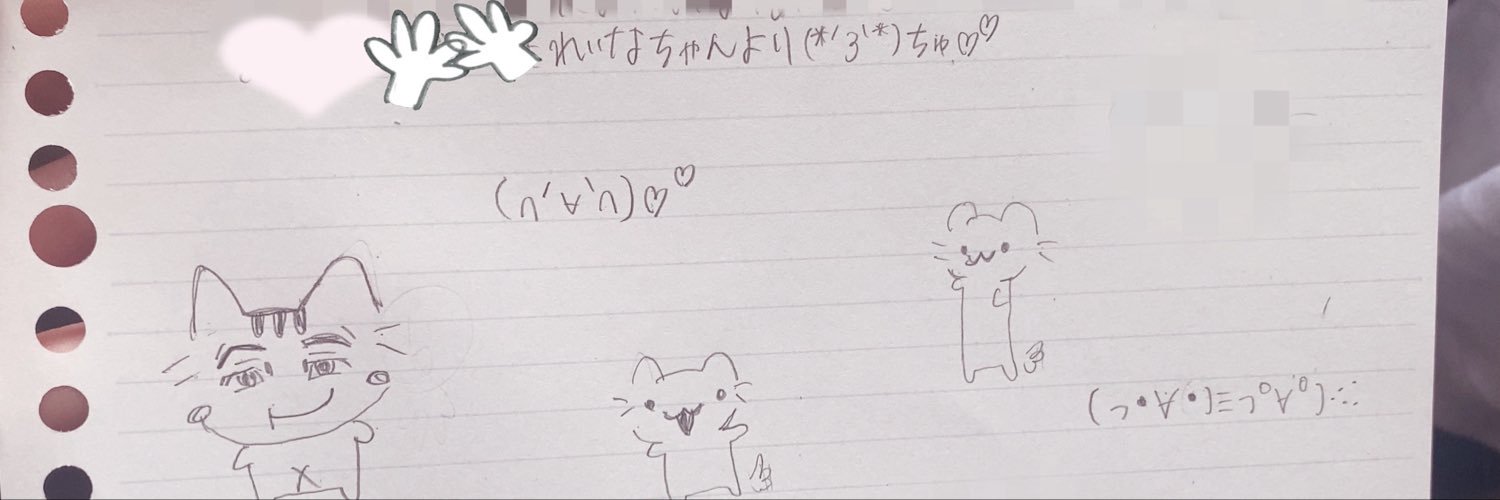 れいなちゃんより(*´3`*)ちゅ♡♡
(∩´∀`∩)♡♡
(っ•∀•)≡っ゚∀゚)∴